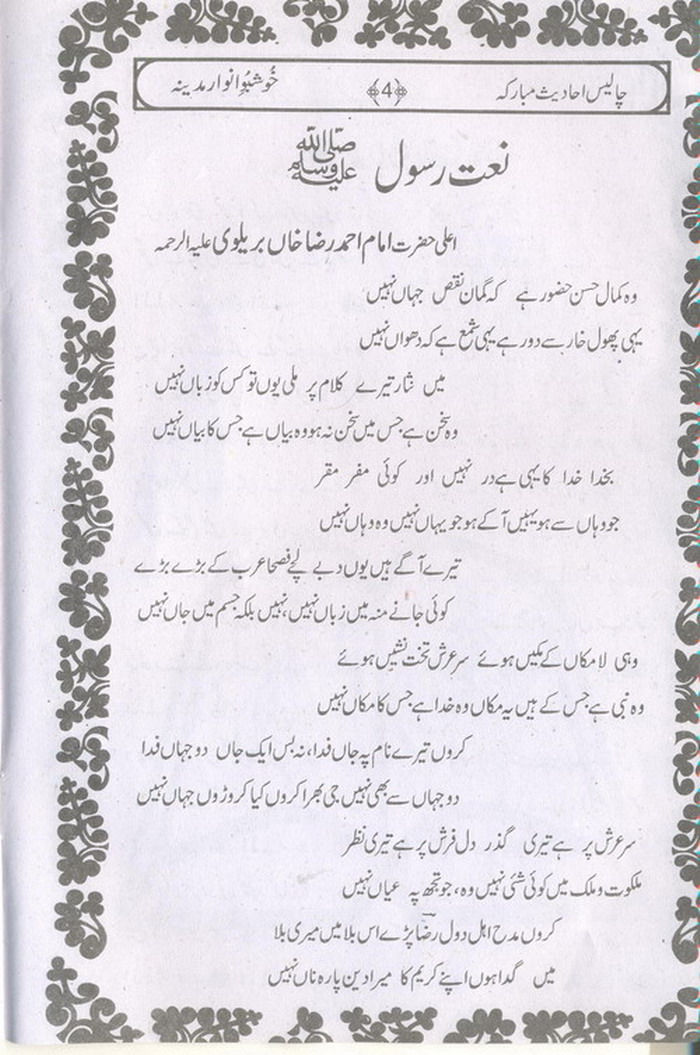 چالیس احادیث مبارکہ ﴿4﴾ خُوشبُوِانوار مدینہ
نعت رسول صلی اللہ علیہ وسلم
اعلیٰ حضرت امام احمد رضا خاں بریلوی علیہ الرحمہ
وہ کمال حسن حضور ہے کہ گمان نقص جہاں نہیں
یہی پھول خار سے دور ہے یہی شمع ہے کہ دھواں نہیں
میں نثار تیرے کلام پر ملی یوں تو کس کو زباں نہیں
وہ سخن ہے جس میں سخن نہ ہو وہ بیاں ہے جس کا بیاں نہیں
بخدا خدا کا یہی ہے در نہیں اور کوئی مفر مقر
جو وہاں سے ہو یہیں آ کے ہو جو یہاں نہیں وہ وہاں نہیں
تیرے آگے ہیں یوں دبے لچے فصحا عرب کے بڑے بڑے
کوئی جانے منہ میں زباں نہیں، نہیں بلکہ جسم میں جاں نہیں
وہی لامکاں کے مکیں ہوئے سر عرش تخت نشیں ہوئے
وہ نبی ہے جس کے ہیں یہ مکاں وہ خدا ہے جس کا مکاں نہیں
کروں تیرے نام پہ جاں فدا، نہ بس ایک جاں دو جہاں فدا
دو جہاں سے بھی نہیں جی بھرا کروں کیا کروڑوں جہاں نہیں
سر عرش پر ہے تیری گذر دل فرش پر ہے تیری نظر
ملکوت و ملک میں کوئی شئی نہیں وہ، جو تجھ پہ عیاں نہیں
کروں مدح اہل دول رضاؔ پڑے اس بلا میں میری بلا
میں گدا ہوں اپنے کریم کا میرا دین پارہ ناں نہیں